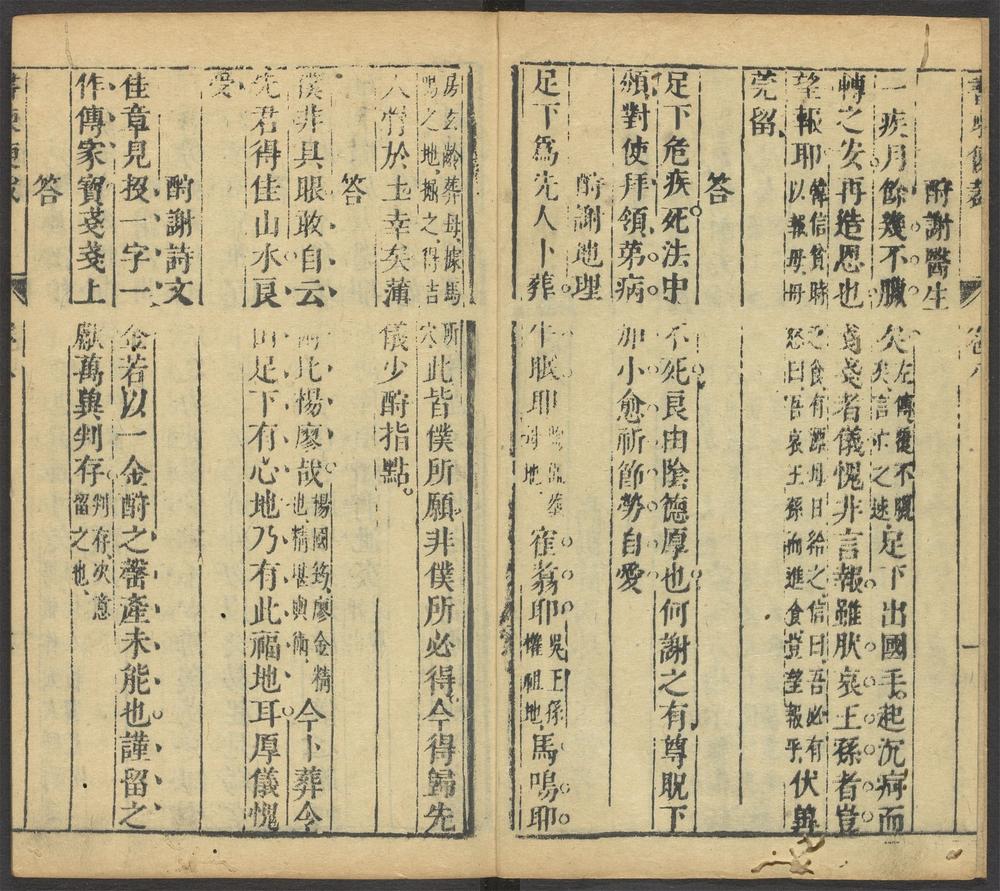 卷八 一
酧謝醫生
一疾月餘幾不臘矣左傳虞不臘矣言亡之速足下出國手起沉痾而
轉之安再造恩也戔戔者儀愧非言報雖肰哀王孫者豈
望報耶韓信貧時之食有漂母日給之信曰吾必有以報母母怒曰吾哀王孫而進食豈望報乎伏冀
莞留
答
足下危疾死法中不死良由陰德厚也何謝之有尊貺下
頒對使拜領第病加小愈祈節勞自愛
酧謝地理
足下爲先人卜葬牛眠耶陶侃葬母地崔蒭耶吳王孫權祖地馬鳴耶
房玄齡葬母據馬所鳴之地掘之得吉穴此皆僕所願非僕所必得今得歸先
人骨於土幸矣蒲儀少酧指點
答
僕非具眼敢自云此楊廖哉楊國筠廖金精也精堪輿術今卜葬今
先君得佳山水良由足下有心地乃有此福地耳厚儀愧
受
酧謝詩文
佳章見投一字一金若以一金酧之罄產未能也謹留之
作傳家寶戔戔上獻萬冀判存判存次意留之也
答